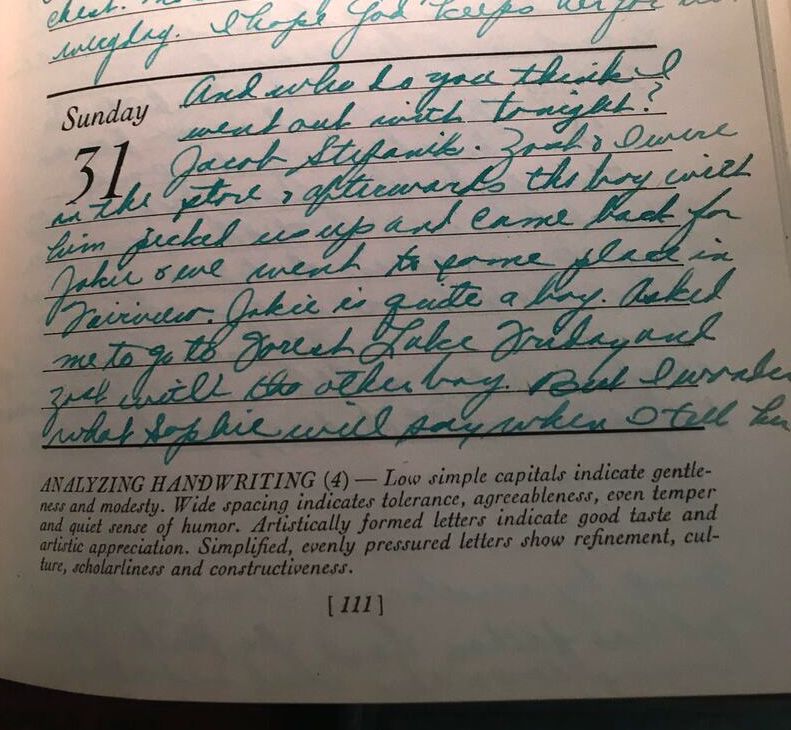 chest.
everyday. I hope God keeps her for
Sunday
31
And who do you think I
went out with tonight?
Jacob Stefanik. Zosh & I were
in the store & afterwards the boy with
him picked us up and came back for
Jakie & we went to some place in
Fairview. Jakie is quite a boy. Asked
me to go to Forest Lake Friday and
Zosh with the other boy. But I wonder
what Sophie will say when I tell her
ANALYZING HANDWRITING (4) — Low simple capitals indicate gentle-
ness and modesty. Wide spacing indicates tolerance, agreeableness, even temper
and quiet sense of humor. Artistically formed letters indicate good taste and
artistic appreciation. Simplified, evenly pressured letters show refinement, cul-
ture, scholarliness and constructiveness.
[111]